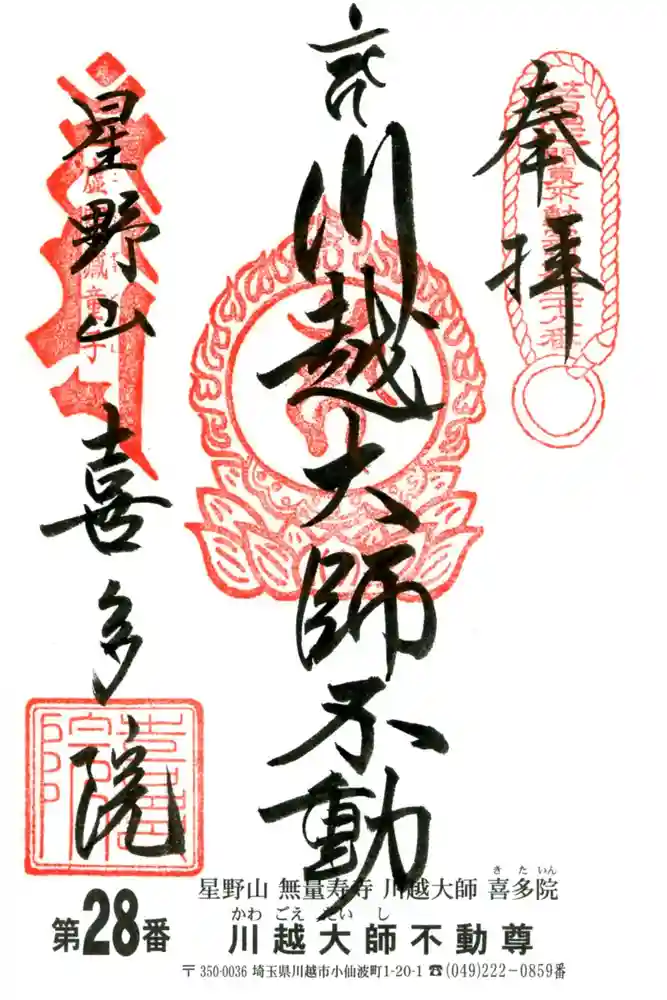 奉拝
川越大師不動
星野山 喜多院
虚
蔵童子
星野山 無量寿寺 川越大師 喜多院
きたいん
第28番
かわごえだいし
川越大師不動尊
〒350-0036 埼玉県川越市小仙波町1-20-1 ☎(049)222-0859番